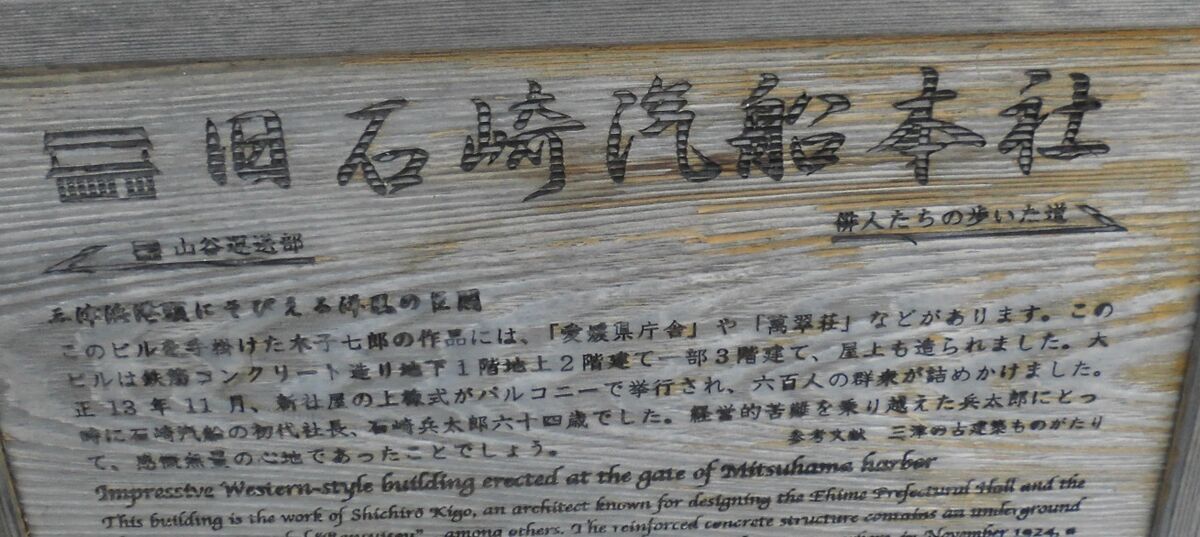 旧石崎汽船本社
俳人たちの歩いた道
山谷運送部
三津浜港頭にそびえる
このビルを手掛けた木子七郎の作品には、「愛媛県庁舎」や「萬翠荘」などがあります。この
ビルは鉄筋コンクリート造り地下1階地上2階建て一部3階建て、屋上も造られました。大
正13年11月、新社屋の上棟式がバルコニーで挙行され、六百人の群衆が詰めかけました。
時に石崎汽船の初代社長、石崎兵太郎六十四歳でした。経営的苦難を乗り越えた兵太郎にとっ
て、感慨無量の心地であったことでしょう。
参考文献 三津の古建築ものがたり
Impressive Western-style building erected at the gate of Mitsuhama harbor
This building is the work of Shichiro Kigo, an architect known for designing the Ehime Prefectural Hall and the
among others. The reinforced concrete structure contains an underground
in November 1924, a